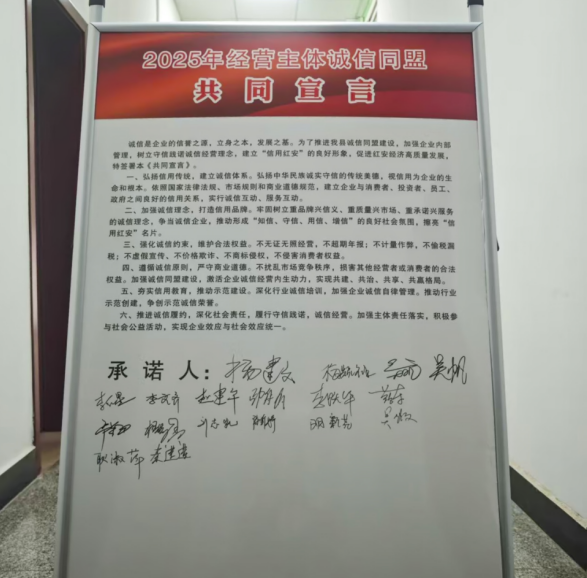 2025年经营主体诚信同盟
共同宣言
诚信是企业的信誉之源，立身之本，发展之基。为了推进我县诚信同盟建设，加强企业内部
管理，树立守信践诺诚信经营理念，建立“信用红安”的良好形象，促进红安经济高质量发展，
特签署本《共同宣言》。
一、弘扬信用传统，建立诚信体系。弘扬中华民族诚实守信的传统美德，视信用为企业的生
命和根本。依照国家法律法规、市场规则和商业道德规范，建立企业与消费者、投资者、员工、
政府之间良好的信用关系，实行诚信互动、服务互动。
二、加强诚信理念，打造信用品牌。牢固树立重品牌兴信义、重质量兴市场、重承诺兴服务
的诚信理念，争当诚信企业，推动形成“知信、守信、用信、增信”的良好社会氛围，擦亮“信
用红安”名片。
三、强化诚信约束，维护合法权益。不无证无照经营，不超期年报；不计量作弊，不偷税漏
税；不虚假宣传、不价格欺诈、不商标侵权，不侵害消费者权益。
四、遵循诚信原则，严守商业道德。不扰乱市场竞争秩序，损害其他经营者或消费者的合法
权益。加强诚信同盟建设，激活企业诚信经营内生动力，实现共建、共治、共享、共赢格局。
五、夯实信用教育，推动示范建设。深化行业诚信培训，加强企业诚信自律管理。推动行业
示范创建，争创示范诚信荣誉。
六、推进诚信履约，深化社会责任，履行守信践诺，诚信经营。加强主体责任落实，积极参
与社会公益活动，实现企业效应与社会效应统一。
承诺人：吴帆
耿淑萍